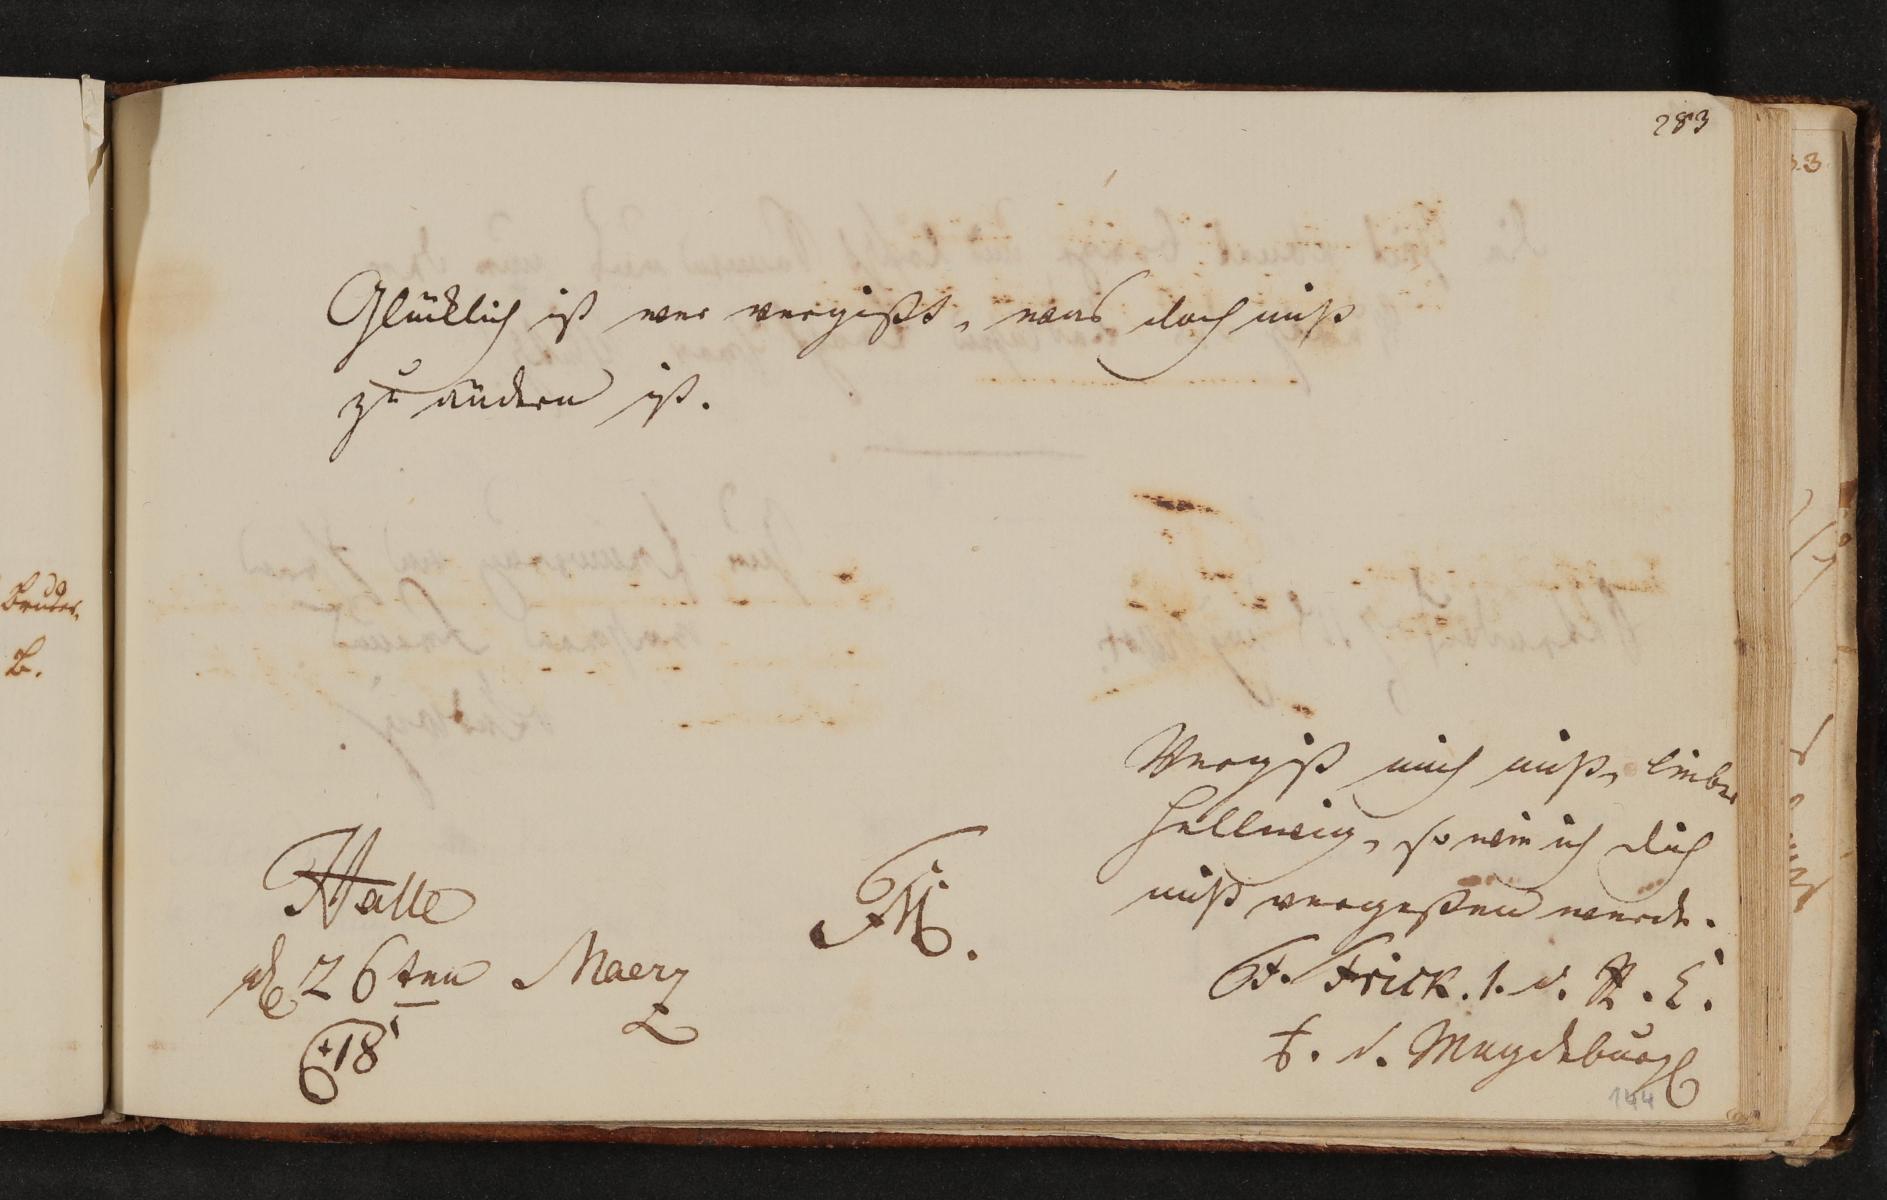 283
Glücklich ist wer vergißt, was doch nicht
zu ändern ist.
Vergiß mich nicht, lieber
Hellwig, so wie ich dich
nicht vergeßen werde.
F. Frick. d. R. C.
a. Magdeburg
Halle
26ten Maerz
18
144
Bruder.
B.